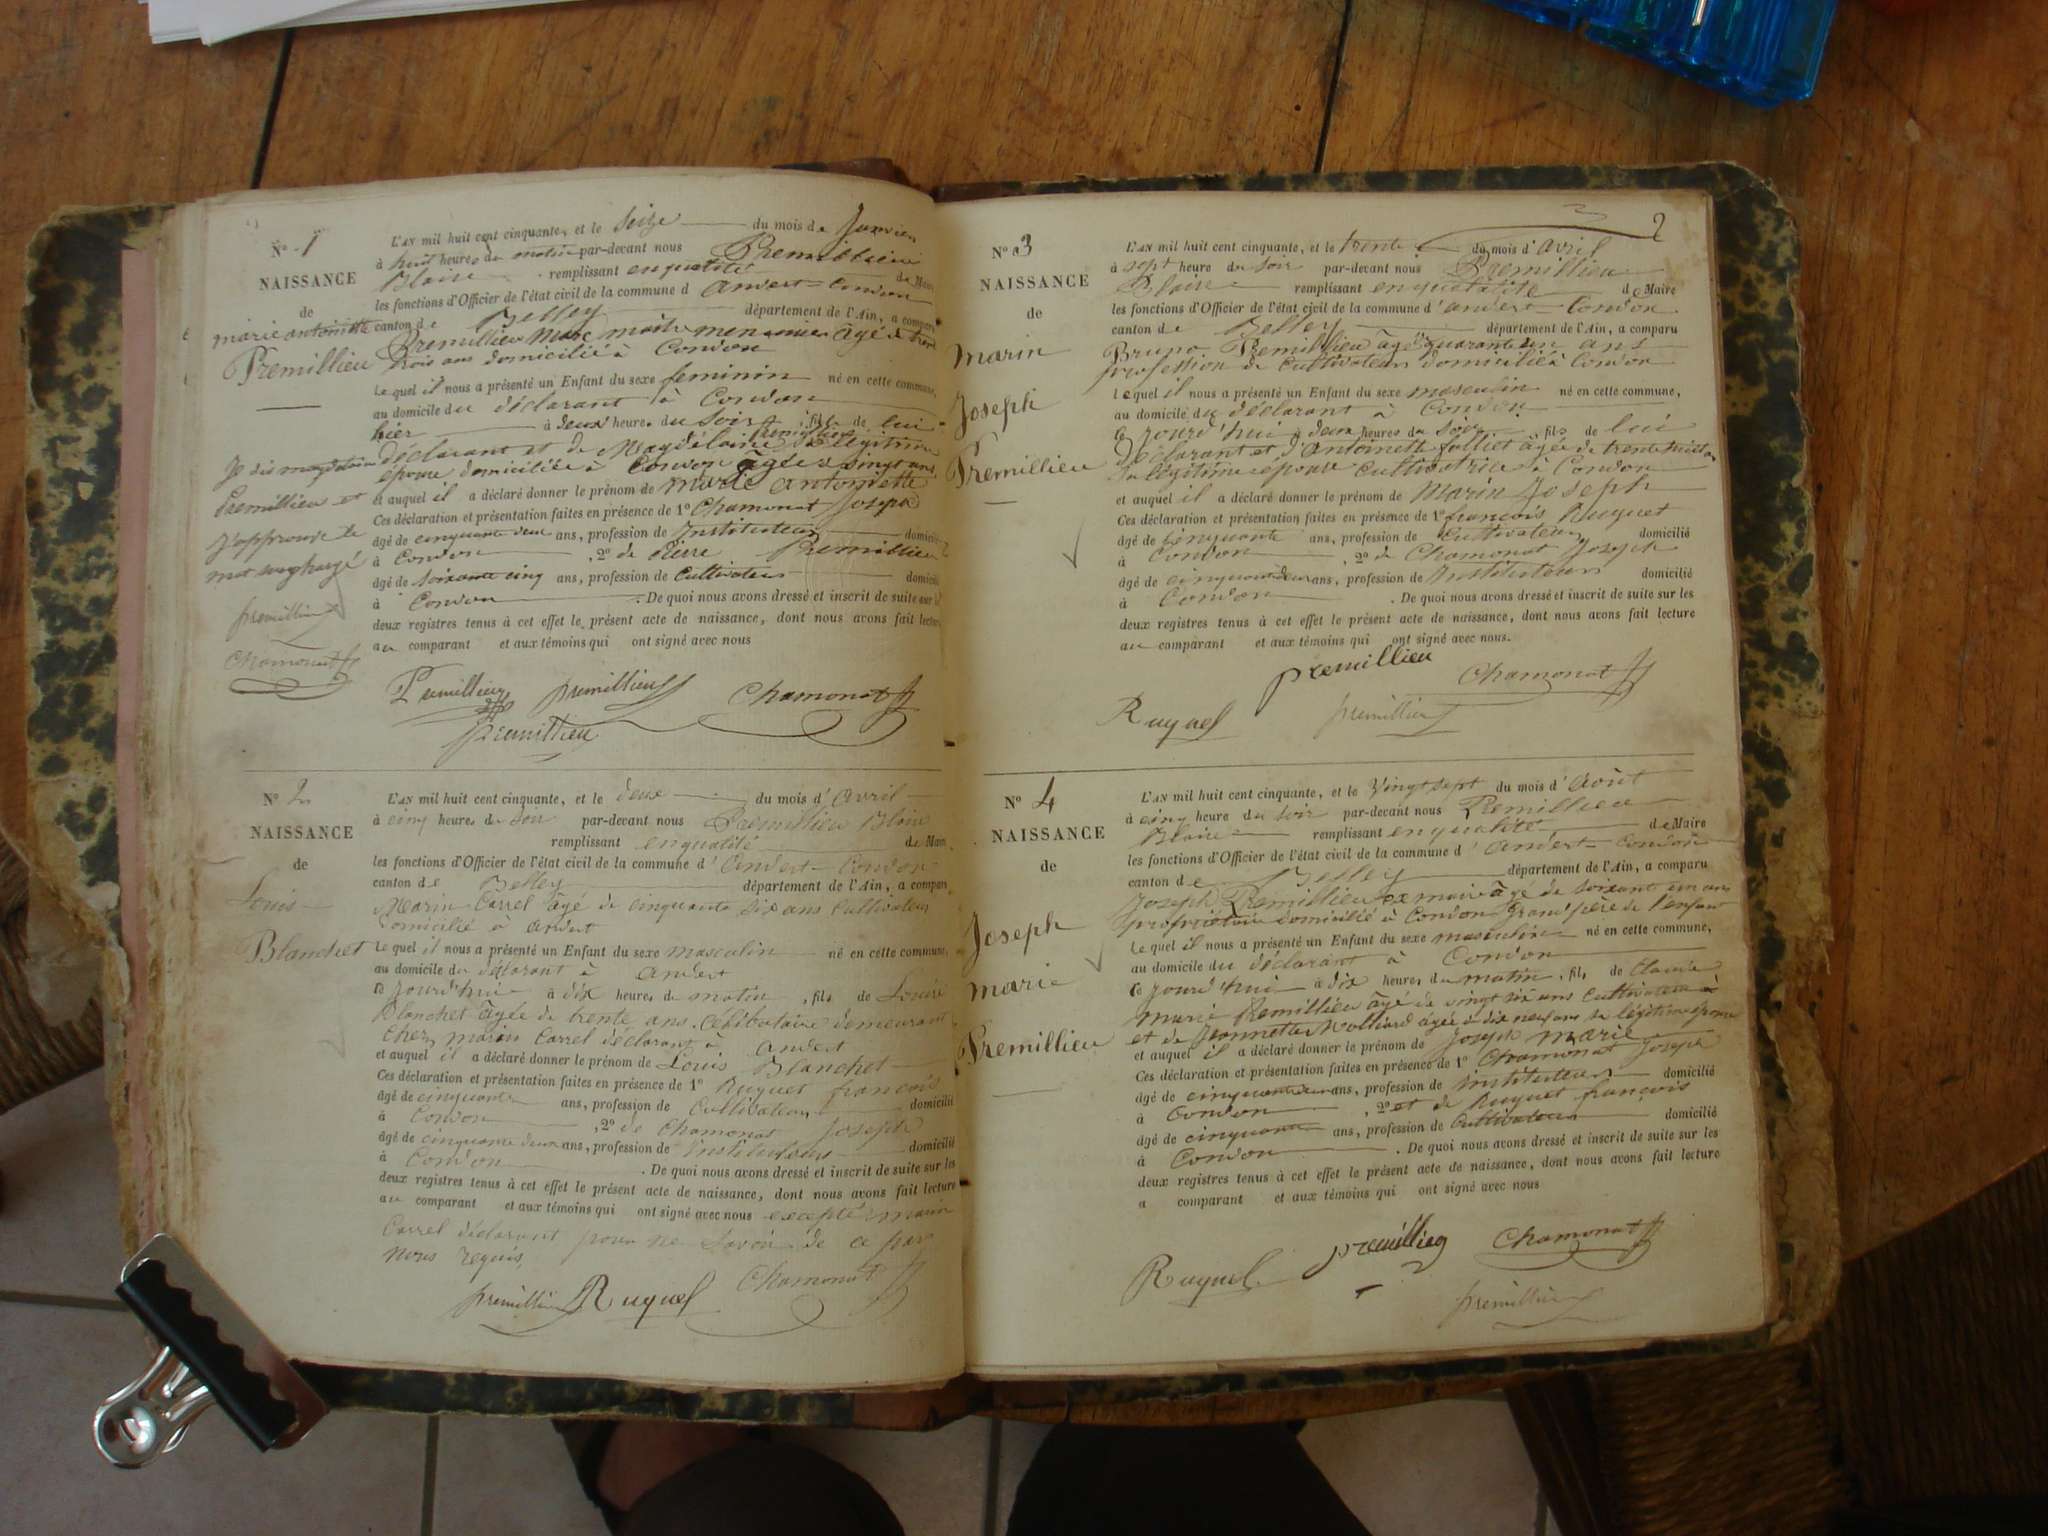 N° 1
NAISSANCE
de
marie antoinette
Premillieu
Je dis magdelaine
Premillieu et
J'approuve le
mot surchargé
premillieu
Chamonat
L'AN mil huit cent cinquante, et le Seize du mois de Janvier
à huit heures du matin par-devant nous Premillieu
Blaise remplissant en qualité de Maire
les fonctions d'Officier de l'état civil de la commune d andert-Condon
canton de Belley département de l'Ain, a comparu
Premillieu Marc âgé de trente
trois ans domicilié à Condon
Lequel il nous a présenté un Enfant du sexe feminin né en cette commune,
au domicile du déclarant à Condon
hier à deux heures du Soir, fils de lui
déclarant et de Magdelaine premillieu Sa légitime
épouse domiciliée à Condon âgée de vingt ans
et auquel il a déclaré donner le prénom de marie antoinette
Ces déclaration et présentation faites en présence de 1° Chamonat Joseph
âgé de cinquante deux ans, profession de Instituteur domicilié
à Condon, 2° de Pierre Premillieu
âgé de soixante cinq ans, profession de Cultivateur domicilié
à Condon. De quoi nous avons dressé et inscrit de suite sur les
deux registres tenus à cet effet le présent acte de naissance, dont nous avons fait lecture
au comparant et aux témoins qui ont signé avec nous
Premillieu premillieu Chamonat
premillieu
N° 2
NAISSANCE
de
Louis
Blanchet
L'AN mil huit cent cinquante, et le deux du mois d'avril
à cinq heures du Soir par-devant nous Premillieu Blaise
remplissant en qualité de Maire
les fonctions d'Officier de l'état civil de la commune d'andert-Condon
canton de Belley département de l'Ain, a comparu
Marin Carrel âgé de cinquante six ans Cultivateur
Domicilié à andert
Lequel il nous a présenté un Enfant du sexe masculin né en cette commune,
au domicile du déclarant à andert
ce jourd'hui à dix heures du matin, fils de Louise
Blanchet âgée de trente ans. Célibataire demeurant
chez marin Carrel déclarant à andert
et auquel il a déclaré donner le prénom de Louis Blanchet
Ces déclaration et présentation faites en présence de 1° Ruguet françois
âgé de cinquante ans, profession de Cultivateur domicilié
à Condon, 2° de Chamonat Joseph
âgé de cinquante deux ans, profession de Instituteur domicilié
à Condon. De quoi nous avons dressé et inscrit de suite sur les
deux registres tenus à cet effet le présent acte de naissance, dont nous avons fait lecture
au comparant et aux témoins qui ont signé avec nous excepté marin
Carrel déclarant pour ne Savoir de ce par
nous requis,
premillieu Ruguet Chamonat
2
N° 3
NAISSANCE
de
Marin
Joseph
Premillieu
L'AN mil huit cent cinquante, et le trente du mois d'avril
à sept heure du soir par-devant nous Premillieu
Blaise remplissant en qualité de Maire
les fonctions d'Officier de l'état civil de la commune d'andert-Condon
canton de Belley département de l'Ain, a comparu
Bruno Premillieu âgé quarante un ans
profession de Cultivateur domicilié à Condon
Lequel il nous a présenté un Enfant du sexe masculin né en cette commune,
au domicile du déclarant à Condon
ce jourd'hui à deux heures du soir, fils de lui
déclarant et d'Antoinette folliet âgée de trente huit ans
Sa légitime epouse Cultivatrice à Condon
et auquel il a déclaré donner le prénom de Marin Joseph
Ces déclaration et présentation faites en présence de 1° françois Ruguet
âgé de cinquante ans, profession de Cultivateur domicilié
à Condon, 2° de Chamonat Joseph
âgé de cinquante deux ans, profession de Instituteur domicilié
à Condon. De quoi nous avons dressé et inscrit de suite sur les
deux registres tenus à cet effet le présent acte de naissance, dont nous avons fait lecture
au comparant et aux témoins qui ont signé avec nous.
premillieu Chamonat
Ruguet premillieu
N° 4
NAISSANCE
de
Joseph
marie
Premillieu
L'AN mil huit cent cinquante, et le Vingt sept du mois d'août
à cinq heure du soir par-devant nous Premillieu
Blaise remplissant en qualité de Maire
les fonctions d'Officier de l'état civil de la commune d'andert-Condon
canton de Belley département de l'Ain, a comparu
Joseph Premillieu ex maire âgé de soixant un ans
propriétaire domicilié à Condon grand'père de l'enfant
Lequel il nous a présenté un Enfant du sexe masculin né en cette commune,
au domicile du déclarant à Condon
ce jourd'hui à dix heures du matin, fils de Claude
marie Premillieu âgé de vingt six ans cultivateur à
et de Jeannette âgée de dix neuf ans Sa légitime épouse
et auquel il a déclaré donner le prénom de Joseph marie
Ces déclaration et présentation faites en présence de 1° Chamonat Joseph
âgé de cinquante deux ans, profession de instituteur domicilié
à Condon, 2° et de Ruguet françois
âgé de cinquante ans, profession de Cultivateur domicilié
à Condon. De quoi nous avons dressé et inscrit de suite sur les
deux registres tenus à cet effet le présent acte de naissance, dont nous avons fait lecture
a comparant et aux témoins qui ont signé avec nous
Ruguet premillieu Chamonat
premillieu